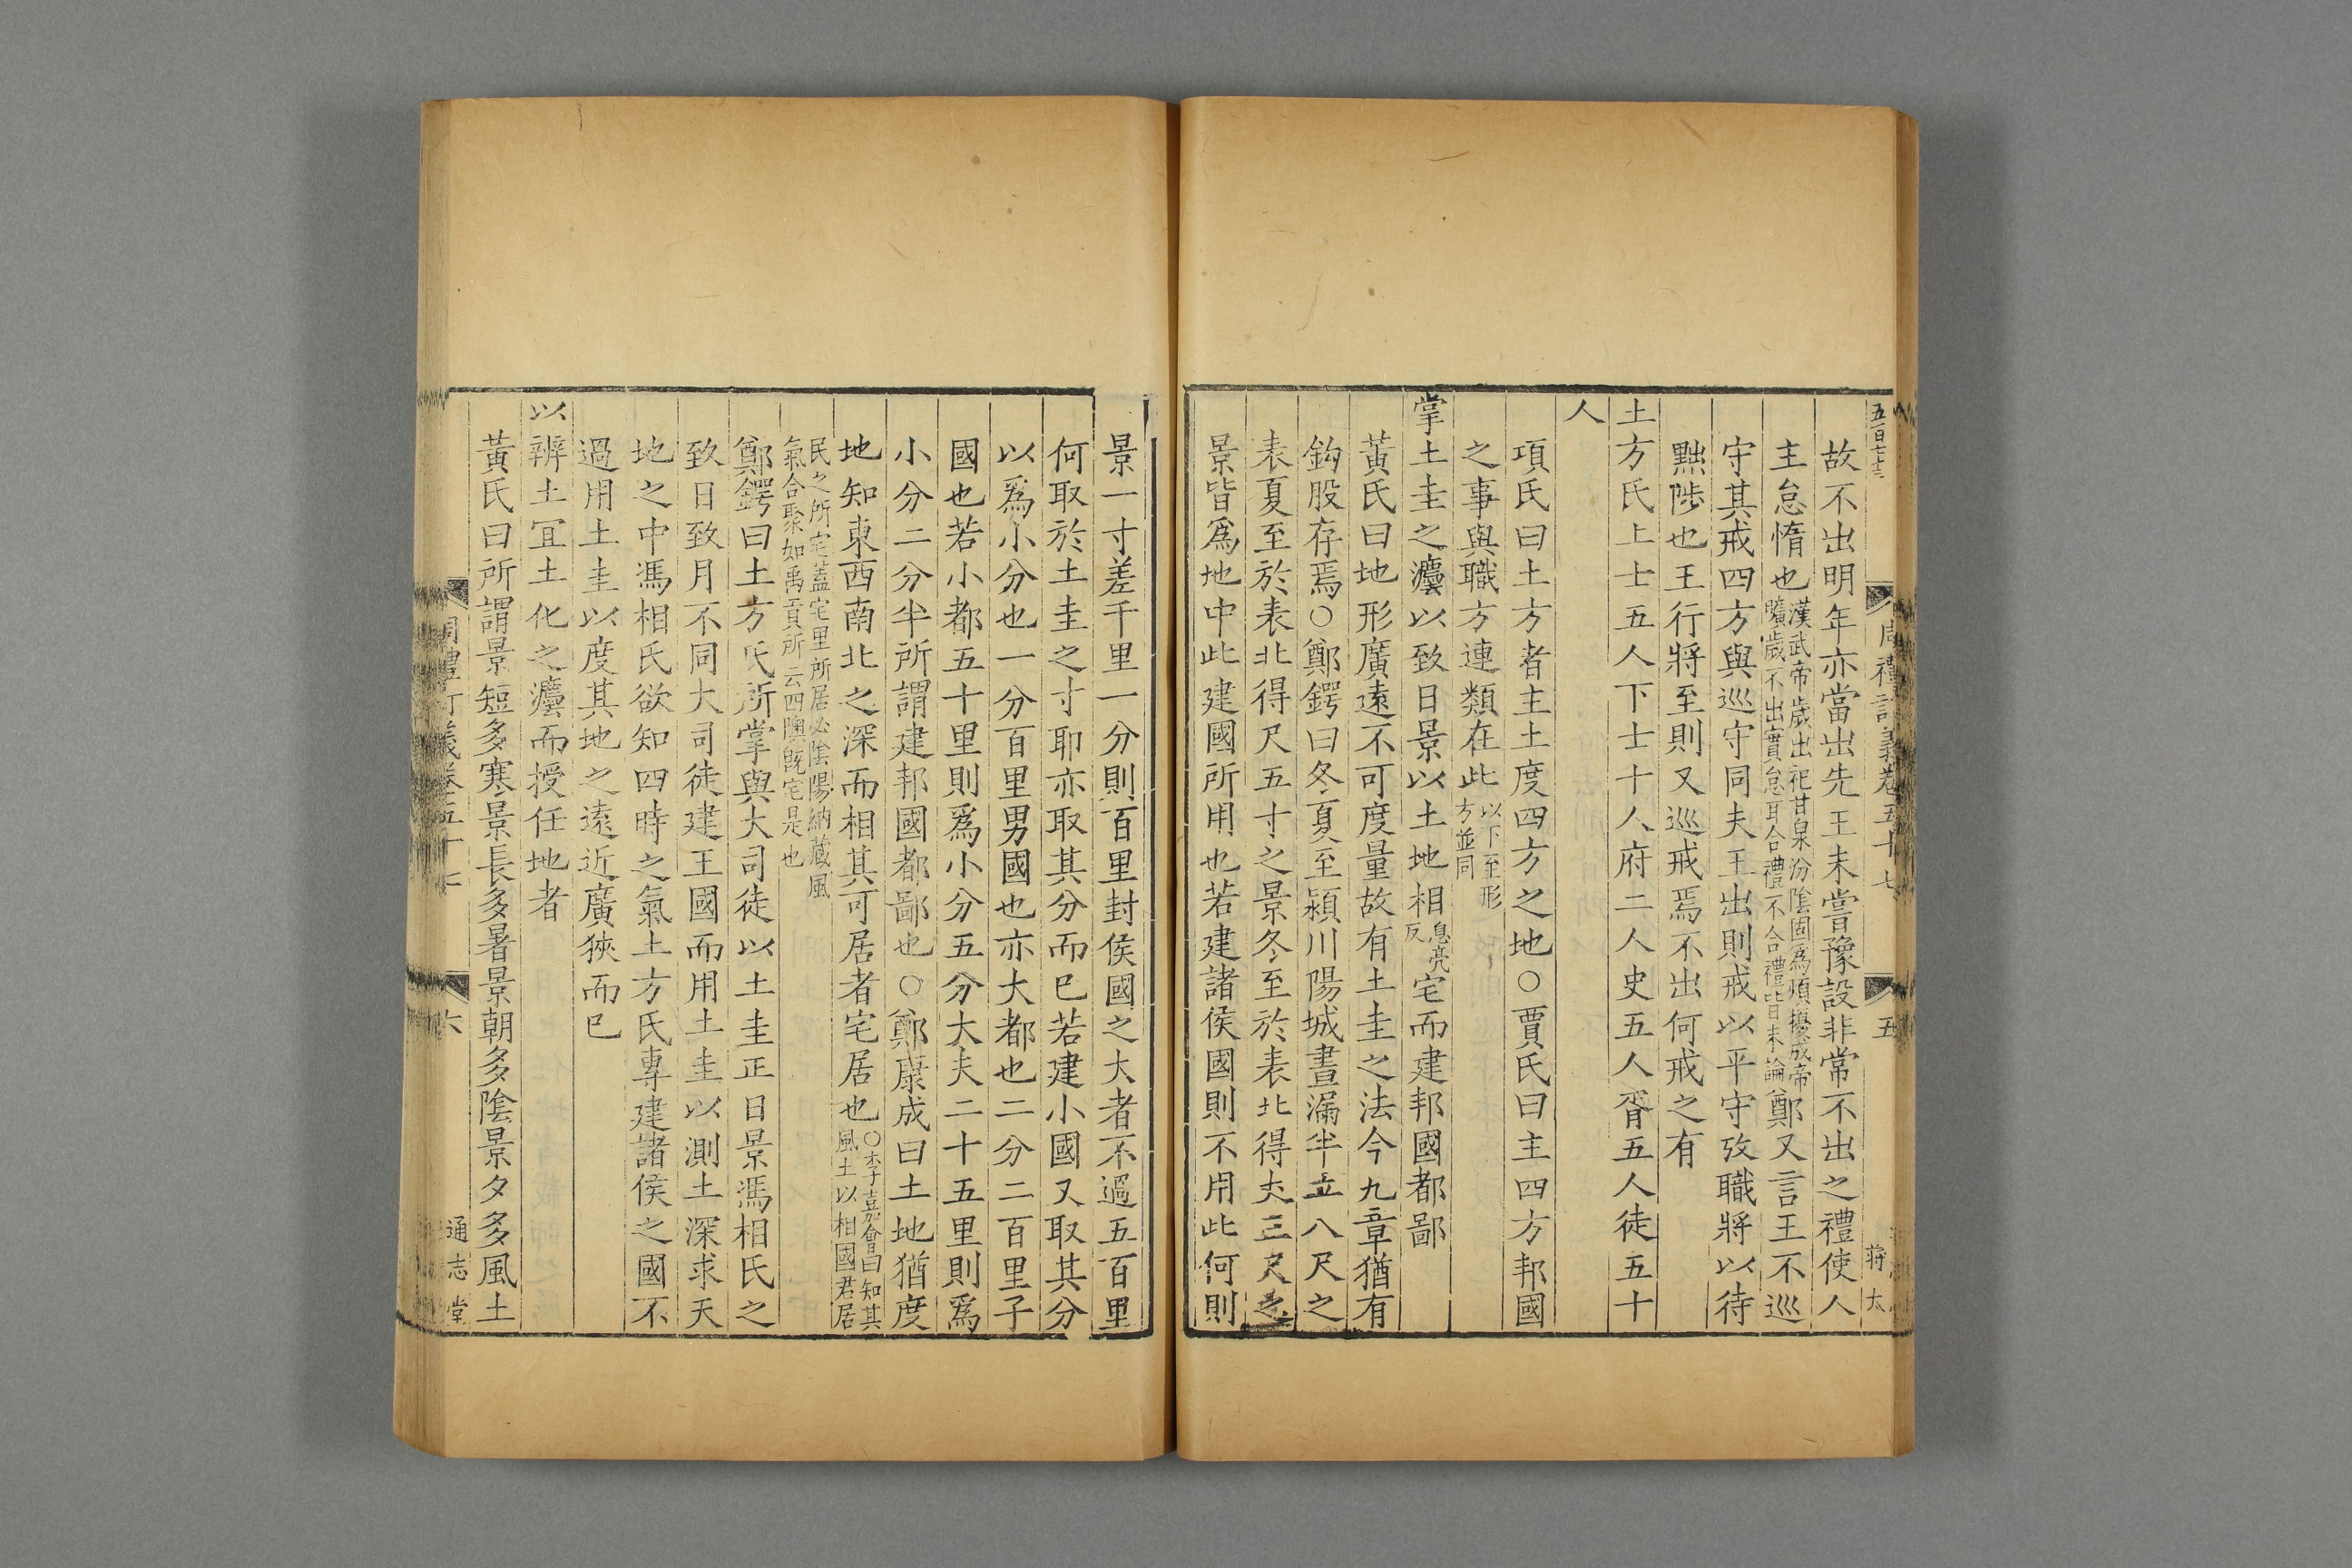 五百七十三
周禮訂義卷五十七
五
蔣太
故不出明年亦當出先王未嘗豫設非常不出之禮使人
主怠惰也漢武帝歲出祀甘泉汾陰固爲煩擾成帝曠歲不出實怠耳合禮不合禮皆未論鄭又言王不巡
守其戒四方與巡守同夫王出則戒以平守攷職將以待
黜陟也王行將至則又巡戒焉不出何戒之有
土方氏上士五人下士十人府二人史五人胥五人徒五十
人
項氏曰土方者主土度四方之地○賈氏曰主四方邦國
之事與職方連類在此以下至形方並同
掌土圭之灋以致日景以土地相息亮反宅而建邦國都鄙
黃氏曰地形廣遠不可度量故有土圭之法今九章猶有
鈎股存焉○鄭鍔曰冬夏至潁川陽城晝漏半立八尺之
表夏至於表北得尺五寸之景冬至於表北得丈三尺之
景皆爲地中此建國所用也若建諸侯國則不用此何則
景一寸差千里一分則百里封侯國之大者不過五百里
何取於土圭之寸耶亦取其分而已若建小國又取其分
以爲小分也一分百里男國也亦大都也二分二百里子
國也若小都五十里則爲小分五分大夫二十五里則爲
小分二分半所謂建邦國都鄙也○鄭康成曰土地猶度
地知東西南北之深而相其可居者宅居也○李嘉會曰知其風土以相國君居
民之所宅蓋宅里所居必陰陽納藏風氣合聚如禹貢所云四隩旣宅是也
鄭鍔曰土方氏所掌與大司徒以土圭正日景馮相氏之
致日致月不同大司徒建王國而用土圭以測土深求天
地之中馮相氏欲知四時之氣土方氏專建諸侯之國不
過用土圭以度其地之遠近廣狹而已
以辨土宜土化之灋而授任地者
黃氏曰所謂景短多寒景長多暑景朝多陰景夕多風土
周禮訂義卷五十七
六
通志堂